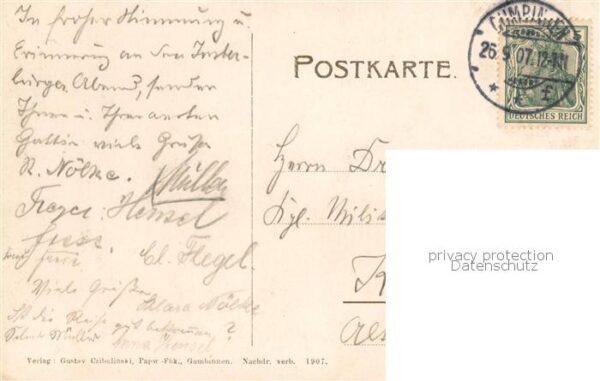 In froher Stimmung u.
Erinnerung an den Inster-
burger Abend, senden
Ihnen u. Ihrer werten
Gattin viele Grüße
R. Nölke. Müller
Hensel
Cl. Flegel.
Viele Grüße
Klara Nölke
Ist die Reise gut bekommen?
Müller Anna Hensel
Verlag: Gustav Czibulinski, Papw.-Fbk., Gumbinnen. Nachdr. verb. 1907.
POSTKARTE.
GUMBINNEN
26.9.07.12-1N
* f *
5
DEUTSCHES REICH
Herrn Dr
Kgl.
K
privacy protection
Datenschutz